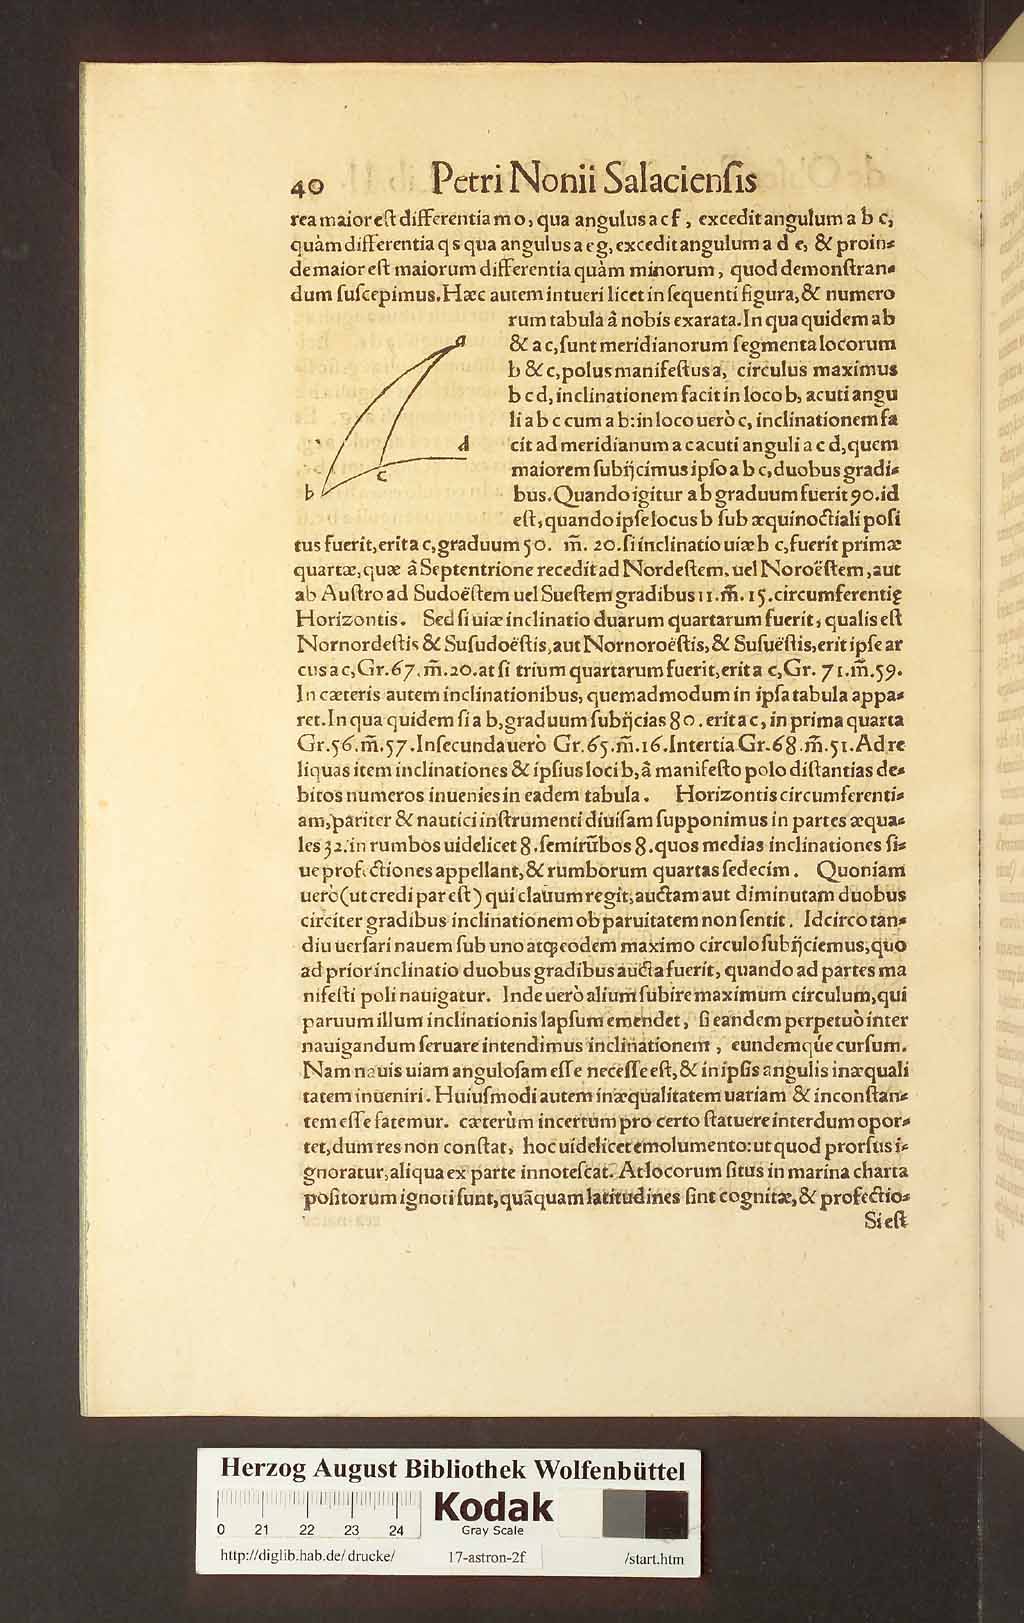 40 Petri Nonii Salaciensis
rea maior est differentia m o, qua angulus a c f, excedit angulum a b c,
quàm differentia q s qua angulus a e g, excedit angulum a d e, & proin=
de maior est maiorum differentia quàm minorum, quod demonstran=
dum suscepimus. Hæc autem intueri licet in sequenti figura, & numero
rum tabula â nobis exarata. In qua quidem a b
& a c, sunt meridianorum segmenta locorum
b & c, polus manifestus a, circulus maximus
b c d, inclinationem facit in loco b, acuti angu
li a b c cum a b: in loco uerò c, inclinationem fa
cit ad meridianum a c acuti anguli a c d, quem
maiorem subijcimus ipso a b c, duobus gradi=
bus. Quando igitur a b graduum fuerit 90. id
est, quando ipse locus b sub æquinoctiali posi
a
d
c
b
tus fuerit, erit a c, graduum 50. m̃. 20. si inclinatio uiæ b c, fuerit primæ
quartæ, quæ â Septentrione recedit ad Nordestem, uel Noroëstem, aut
ab Austro ad Sudoëstem uel Suestem gradibus 11. m̃. 15. circumferentię
Horizontis. Sed si uiæ inclinatio duarum quartarum fuerit, qualis est
Nornordestis & Susudoëstis, aut Nornoroëstis, & Susuëstis, erit ipse ar
cus a c, Gr. 67. m̃. 20. at si trium quartarum fuerit, erit a c, Gr. 71. m̃. 59.
In cæteris autem inclinationibus, quemadmodum in ipsa tabula appa=
ret. In qua quidem si a b, graduum subijcias 80. erit a c, in prima quarta
Gr. 56. m̃. 57. In secunda uerò Gr. 65. m̃. 16. In tertia Gr. 68. m̃. 51. Ad re
liquas item inclinationes & ipsius loci b, â manifesto polo distantias de=
bitos numeros inuenies in eadem tabula. Horizontis circumferenti=
am, pariter & nautici instrumenti diuisam supponimus in partes æqua=
les 32. in rumbos uidelicet 8. semirũbos 8. quos medias inclinationes si=
ue profectiones appellant, & rumborum quartas sedecim. Quoniam
uerò (ut credi par est) qui clauum regit, auctam aut diminutam duobus
circiter gradibus inclinationem ob paruitatem non sentit. Idcirco tan=
diu uersari nauem sub uno atq; eodem maximo circulo subijciemus, quo
ad prior inclinatio duobus gradibus aucta fuerit, quando ad partes ma
nifesti poli nauigatur. Inde uerò alium subire maximum circulum, qui
paruum illum inclinationis lapsum emendet, si eandem perpetuò inter
nauigandum seruare intendimus inclinationem, eundemq́ue cursum.
Nam nauis uiam angulosam esse necesse est, & in ipsis angulis inæquali
tatem inueniri. Huiusmodi autem inæqualitatem uariam & inconstan=
tem esse fatemur. cæterùm incertum pro certo statuere interdum opor=
tet, dum res non constat, hoc uidelicet emolumento: ut quod prorsus i=
gnoratur, aliqua ex parte innotescat. At locorum situs in marina charta
positorum ignoti sunt, quãquam latitudines sint cognitæ, & profectio=
Si est
Herzog August Bibliothek Wolfenbüttel
0 21 22 23 24
Kodak
Gray Scale
http://diglib.hab.de/drucke/ 17-astron-2f /start.htm